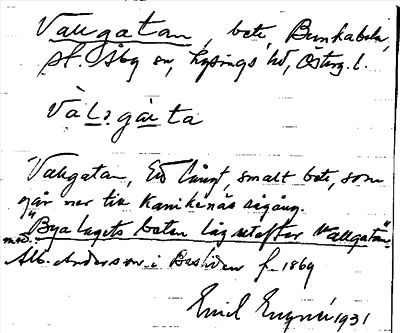 Vallgatan, bete, Bunkabola,
St. Åby sn, Lysings hd, Österg. l.
Và L2 gàta
Vallgatan, Ett långt, smalt bete, som
går ner till Kanikenäs
"Byalagets beten låg utefter Vallgatan"
med. Alb. Andersson i f. 1869
Emil 1931